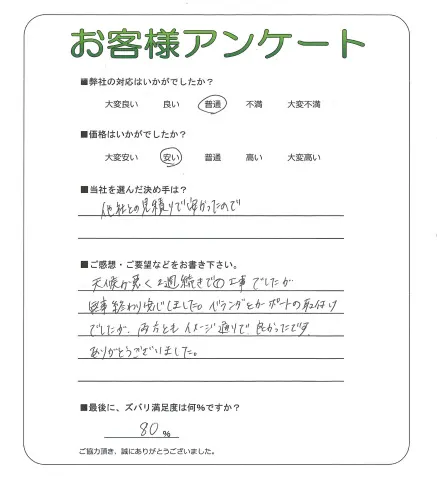 お客様アンケート
■弊社の対応はいかがでしたか?
大変良い 良い 普通 不満 大変不満
■価格はいかがでしたか?
大変安い 安い 普通 高い 大変高い
■当社を選んだ決め手は?
他社との見積りで安かったので
■ご感想・ご要望などをお書き下さい。
天候が悪く2週続きでの工事でしたが
無事終わり安心しました。ベランダとカーポートの取付け
でしたが、両方ともイメージ通りで良かったです。
ありがとうございました。
■最後に、ズバリ満足度は何%ですか?
80%
ご協力頂き、誠にありがとうございました。